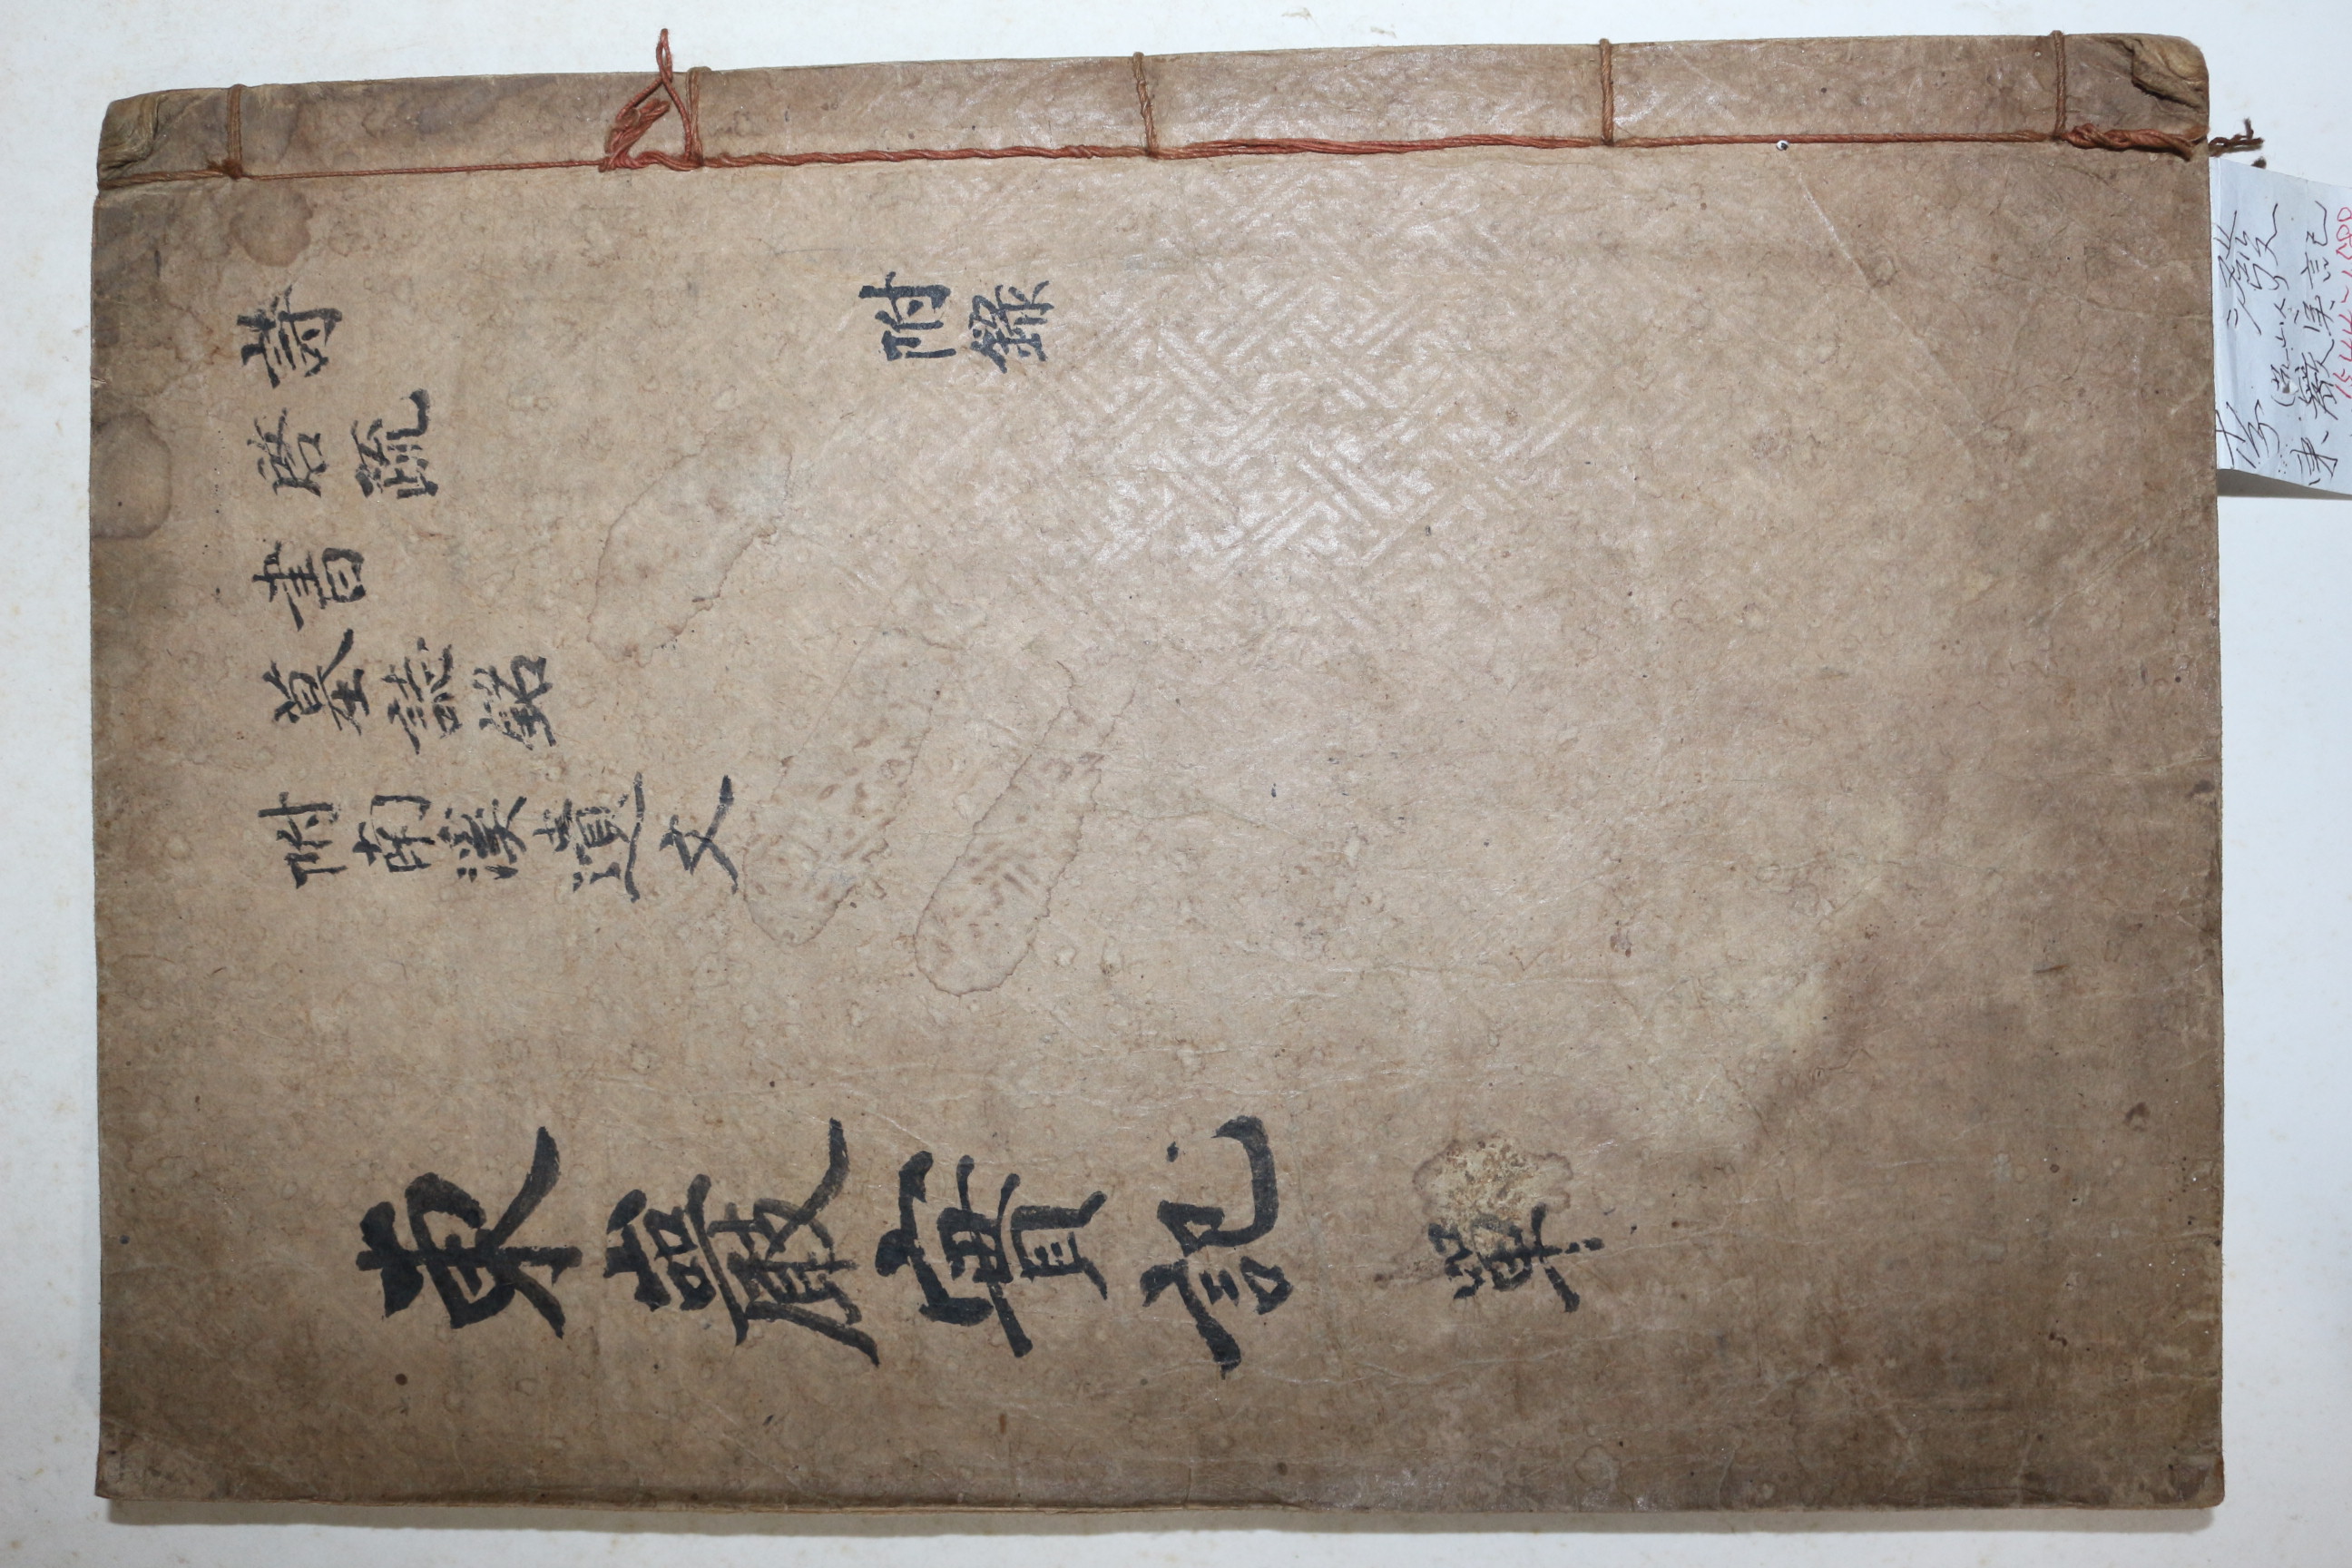 詩
附錄
啓疏
書
墓誌銘
附南溪遺文
東巖實記 單
李 潑
東巖実記